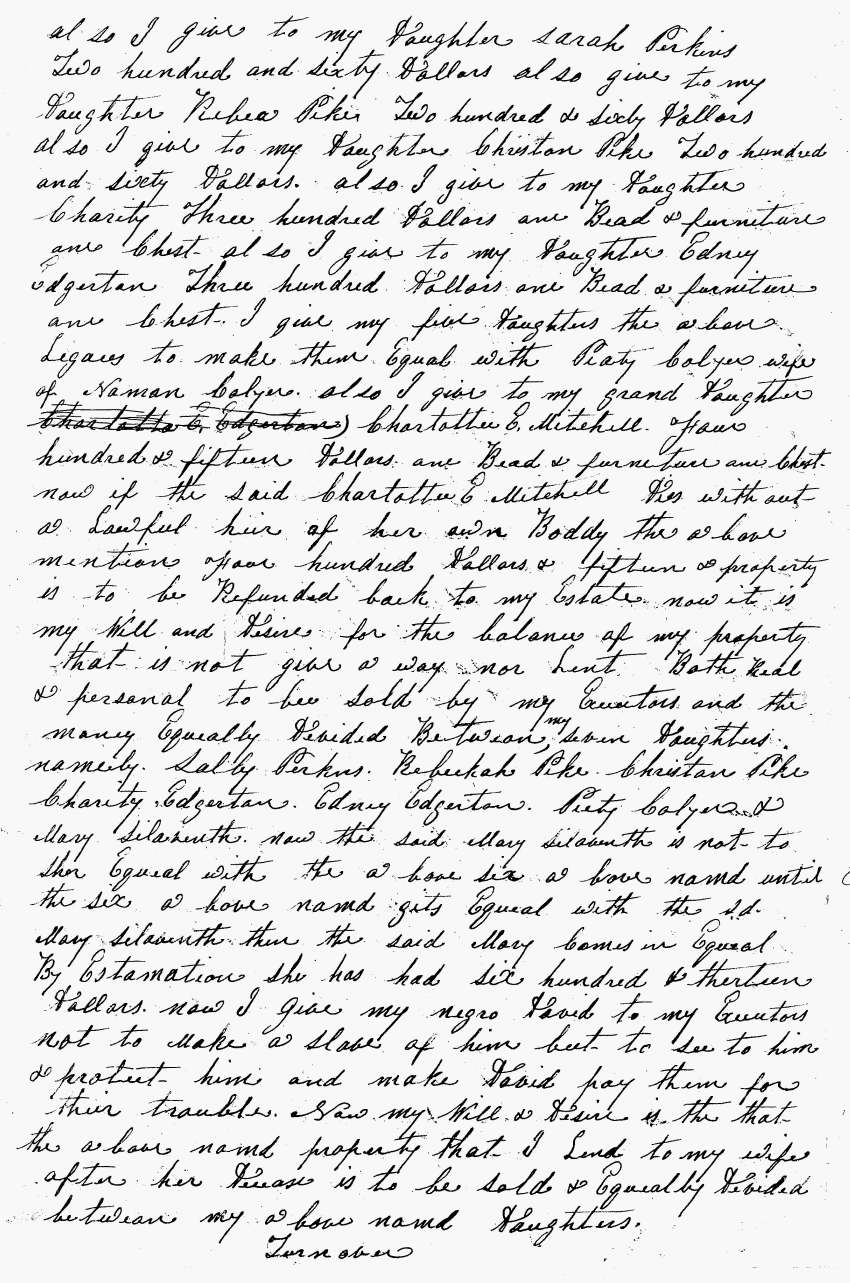 also I give to my Daughter Sarah Perkins
Two hundred and sixty Dollars also give to my
Daughter Rebea Pike Two hundred & sixty Dollars
also I give to my Daughter Christon Pike Two hundred
and sixty Dollars. also I give to my Daughter
Charity Three hundred Dollars one Bead & furneture
one Chest also I give to my Daughter Edney
Edgerton Three hundred Dollars one Bead & furneture
one Chest. I give my five Daughters the a bove
Legaces to make them Equal with Peaty Colyer wife
of Naman Colyer. also I give to my grand Daughter
Charlotta E. Edgerton) Charlottee E. Mitchell. Four
hundred & fifteen Dollars one Bead & furneture one Chest.
now if the said Charlottee E Mitchell Dies with out
a Lawful heir of her own Boddy the a bove
mention Four hundred Dollars & fifteen & property
is to be Refunded back to my Estate now it is
my Will and Desire for the balance of my property
that is not give a way nor Lent. Both Real
& personal to bee sold by my Executors and the
money Equeally Devided Between my seven Daughters.
namely. Sally Perkins. Rebeckah Pike Christon Pike
Charity Edgerton. Edney Edgerton. Piety Colyer &
Mary Silaventh. now the said Mary Silaventh is not to
sher Equeal with the a bove six a bove namd until
the six a bove namd gits Equeal with the sd.
Mary Silaventh then the said Mary Comes in Equeal
By Estamation she has had six hundred & therteen
Dollars. now I give my negro David to my Executors
not to Make a slave of him but to see to him
& protect him and make David pay them for
their trouble. Now my Will & Desire is the that
the a bove namd property that I Lend to my wife
after her Decease is to be sold & Equeally Devided
between my a bove namd Daughters.
Turn over